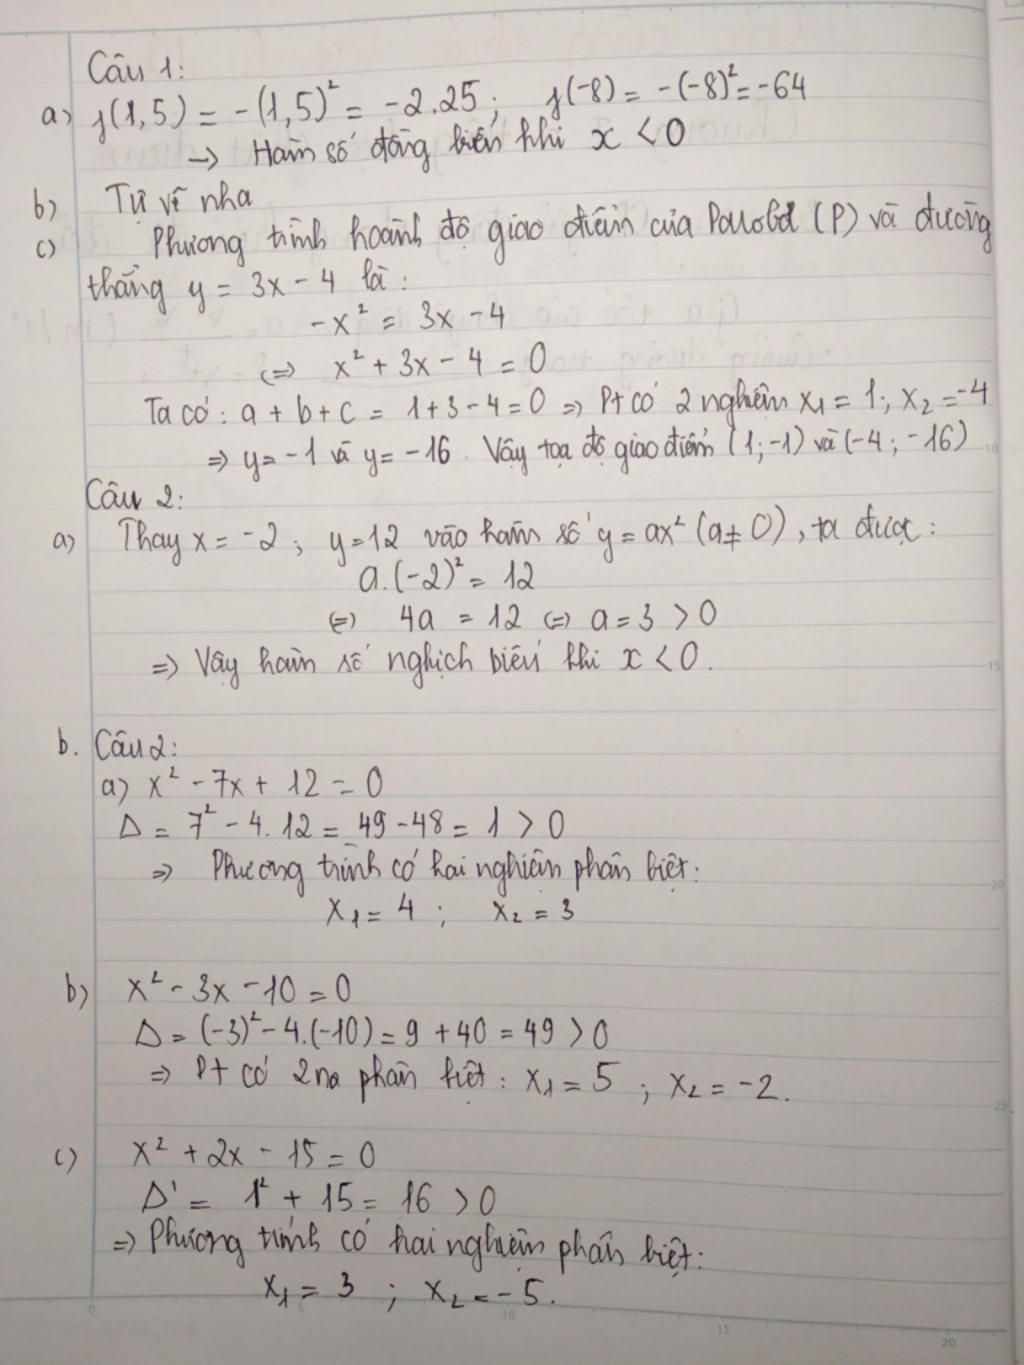 Câu 1:
a) f(1,5) = -(1,5)² = -2.25; f(-8) = -(-8)² = -64
→ Hàm số đồng biến khi x < 0
b) Tự vẽ nha
c) Phương trình hoành độ giao điểm của Parabol (P) và đường
thẳng y = 3x - 4 là:
-x² = 3x - 4
<=> x² + 3x - 4 = 0
Ta có: a + b + c = 1+3-4=0 => Pt có 2 nghiệm x₁ = 1; x₂ = -4
=> y = -1 và y = -16. Vậy toạ độ giao điểm (1;-1) và (-4; -16)
Câu 2:
a) Thay x = -2; y = 12 vào hàm số y = ax² (a ≠ 0), ta được:
a.(-2)² = 12
<=> 4a = 12 <=> a = 3 > 0
=> Vậy hàm số nghịch biến khi x < 0.
b. Câu 2:
a) x² - 7x + 12 = 0
Δ = 7² - 4.12 = 49 - 48 = 1 > 0
=> Phương trình có hai nghiệm phân biệt:
x₁ = 4; x₂ = 3
b) x² - 3x - 10 = 0
Δ = (-3)² - 4.(-10) = 9 + 40 = 49 > 0
=> Pt có 2 no phân biệt: x₁ = 5; x₂ = -2.
c) x² + 2x - 15 = 0
Δ' = 1² + 15 = 16 > 0
=> Phương trình có hai nghiệm phân biệt:
x₁ = 3; x₂ = -5.